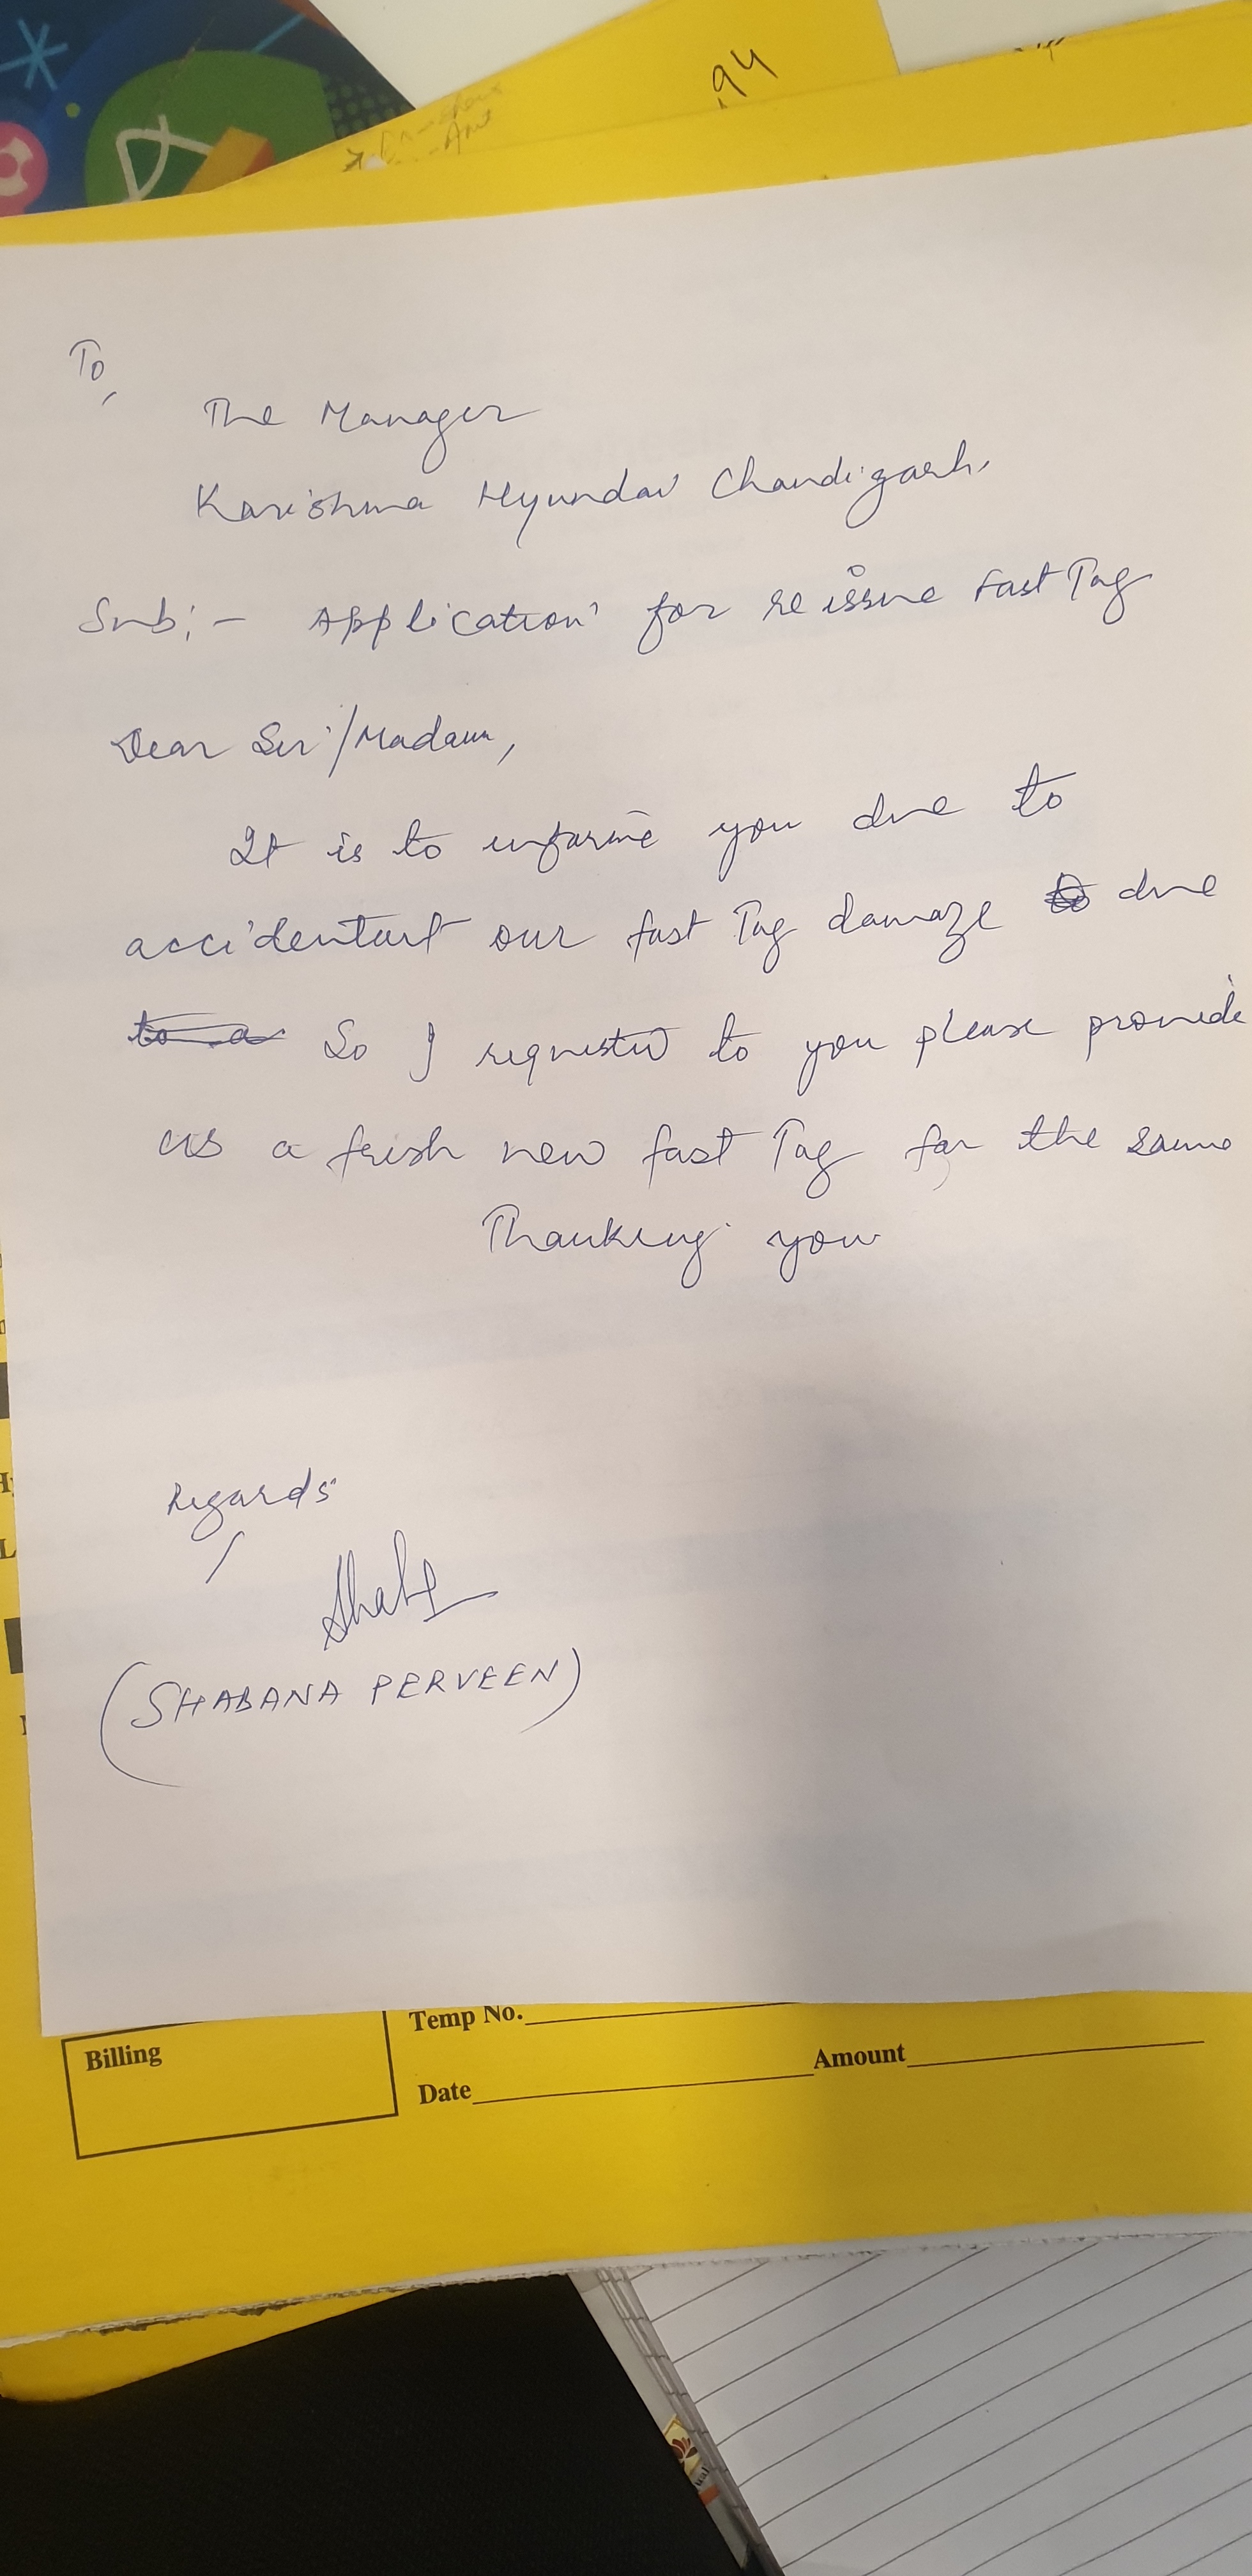 ,94
To,
The Manager
Karishma Hyundai Chandigarh.
Sub:- Application for reissue Fast Tag
Dear Sir/Madam,
It is to informe you due to
accidentart our fast Tag damage due
to a So I requested to you please provide
us a fresh new fast Tag for the same
Thanking you
Regards
(SHABANA PERVEEN)
Temp No.
Billing
Amount
Date